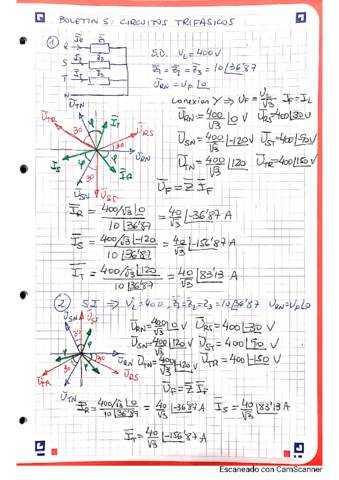 BOLETIN 5: CIRCUITOS TRIFASICOS
① R I̅R Z̅1
S I̅S Z̅2
T I̅T Z̅3
N
S.D. VL = 400V
Z̅1 = Z̅2 = Z̅3 = 10∠36'87
U̅RN = UF∠0
Conexión Y ⇒ UF = UL/√3 IF = IL
U̅RN = 400/√3 ∠0 V U̅RS = 400∠30 V
U̅SN = 400/√3 ∠-120 V U̅ST = 400∠-90 V
U̅TN = 400/√3 ∠120 U̅TR = 400∠150 V
U̅F = Z̅ I̅F
U̅TN
U̅TR I̅T U̅RS
30 φ 30
U̅RN
I̅S φ I̅R
U̅SN 30 U̅ST
I̅R = 400/√3∠0 / 10∠36'87 = 40/√3 ∠-36'87 A
I̅S = 400/√3∠-120 / 10∠36'87 = 40/√3 ∠-156'87 A
I̅T = 400/√3∠120 / 10∠36'87 = 40/√3 ∠83'13 A
② S.I ⇒ VL = 400, Z̅1 = Z̅2 = Z̅3 = 10∠36'87 U̅RN = UF∠0
U̅RN = 400/√3 ∠0 V U̅RS = 400∠-30 V
U̅SN = 400/√3 ∠120 V U̅ST = 400∠90 V
U̅TN = 400/√3 ∠-120 V U̅TR = 400∠-150 V
U̅F = Z̅ I̅F
U̅SN U̅ST
30
U̅RN
30
U̅TR U̅RS
U̅TN
I̅R = 400/√3∠0 / 10∠36'87 = 40/√3 ∠-36'87 A I̅S = 40/√3 ∠83'13 A
I̅T = 40/√3 ∠-156'87 A
Escaneado con CamScanner